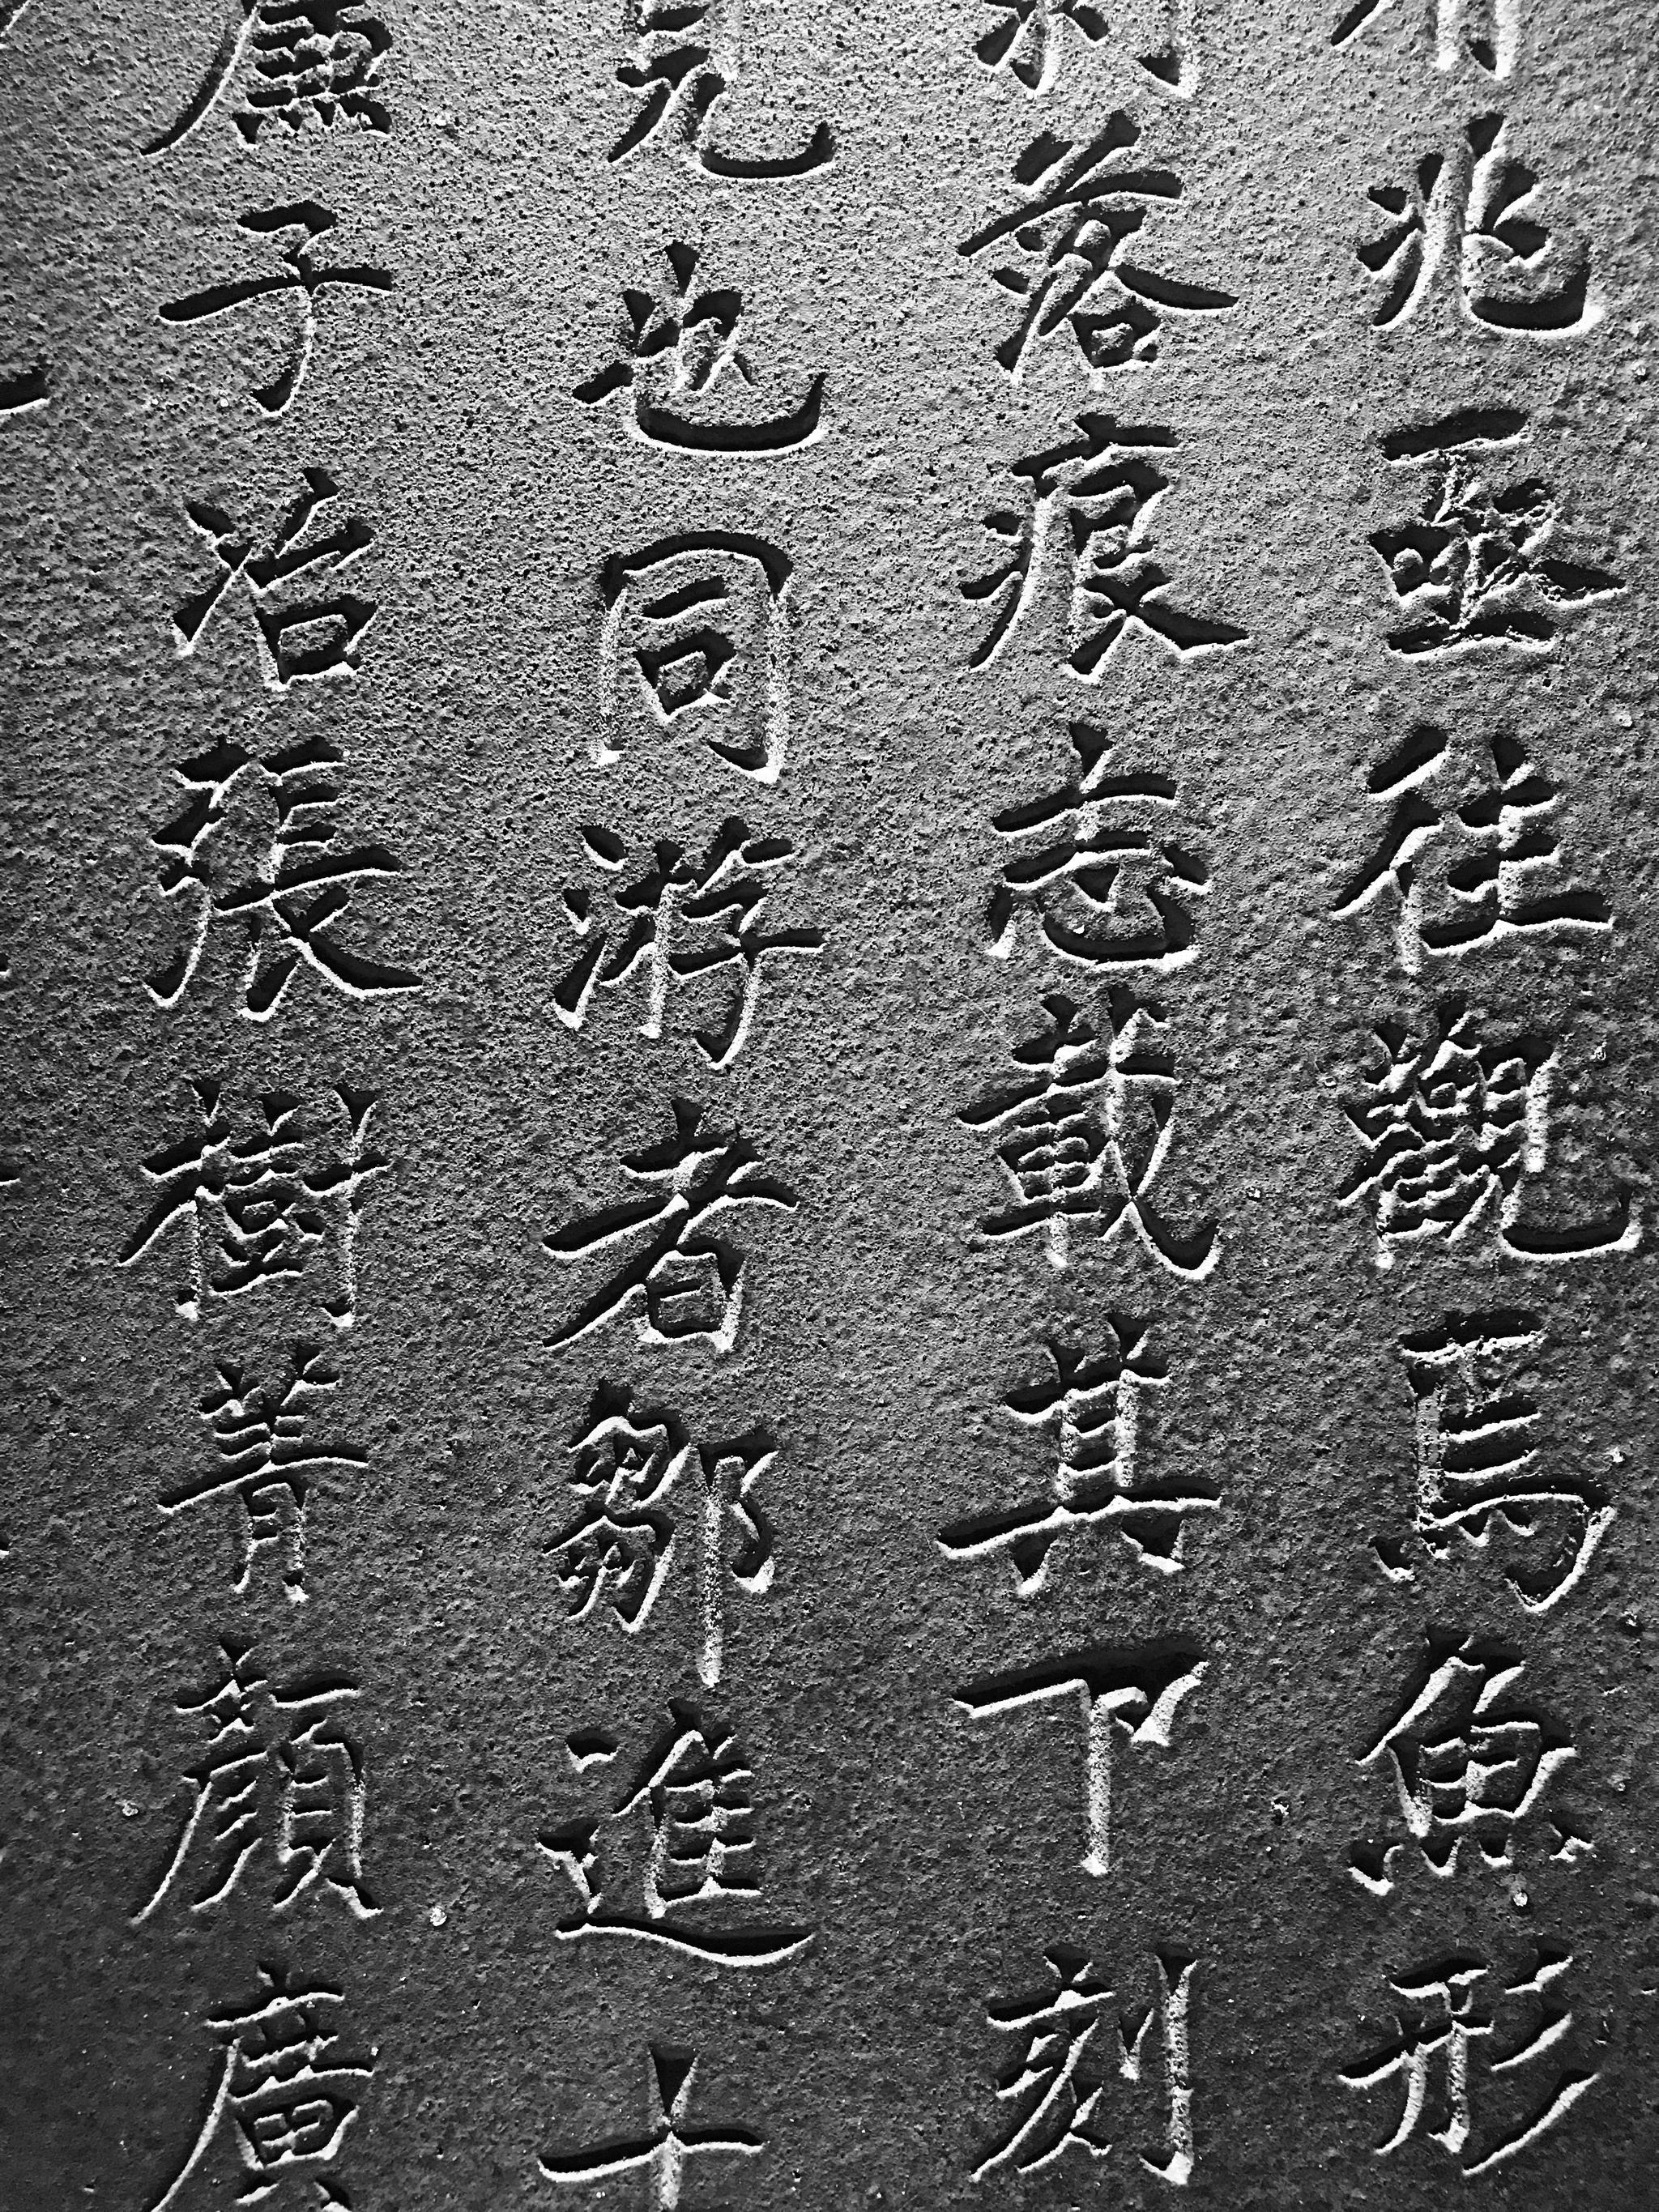 兆亟往觀焉魚形
落痕志載其下刻
也同游者鄒進十
廉子治張樹菁顏廣